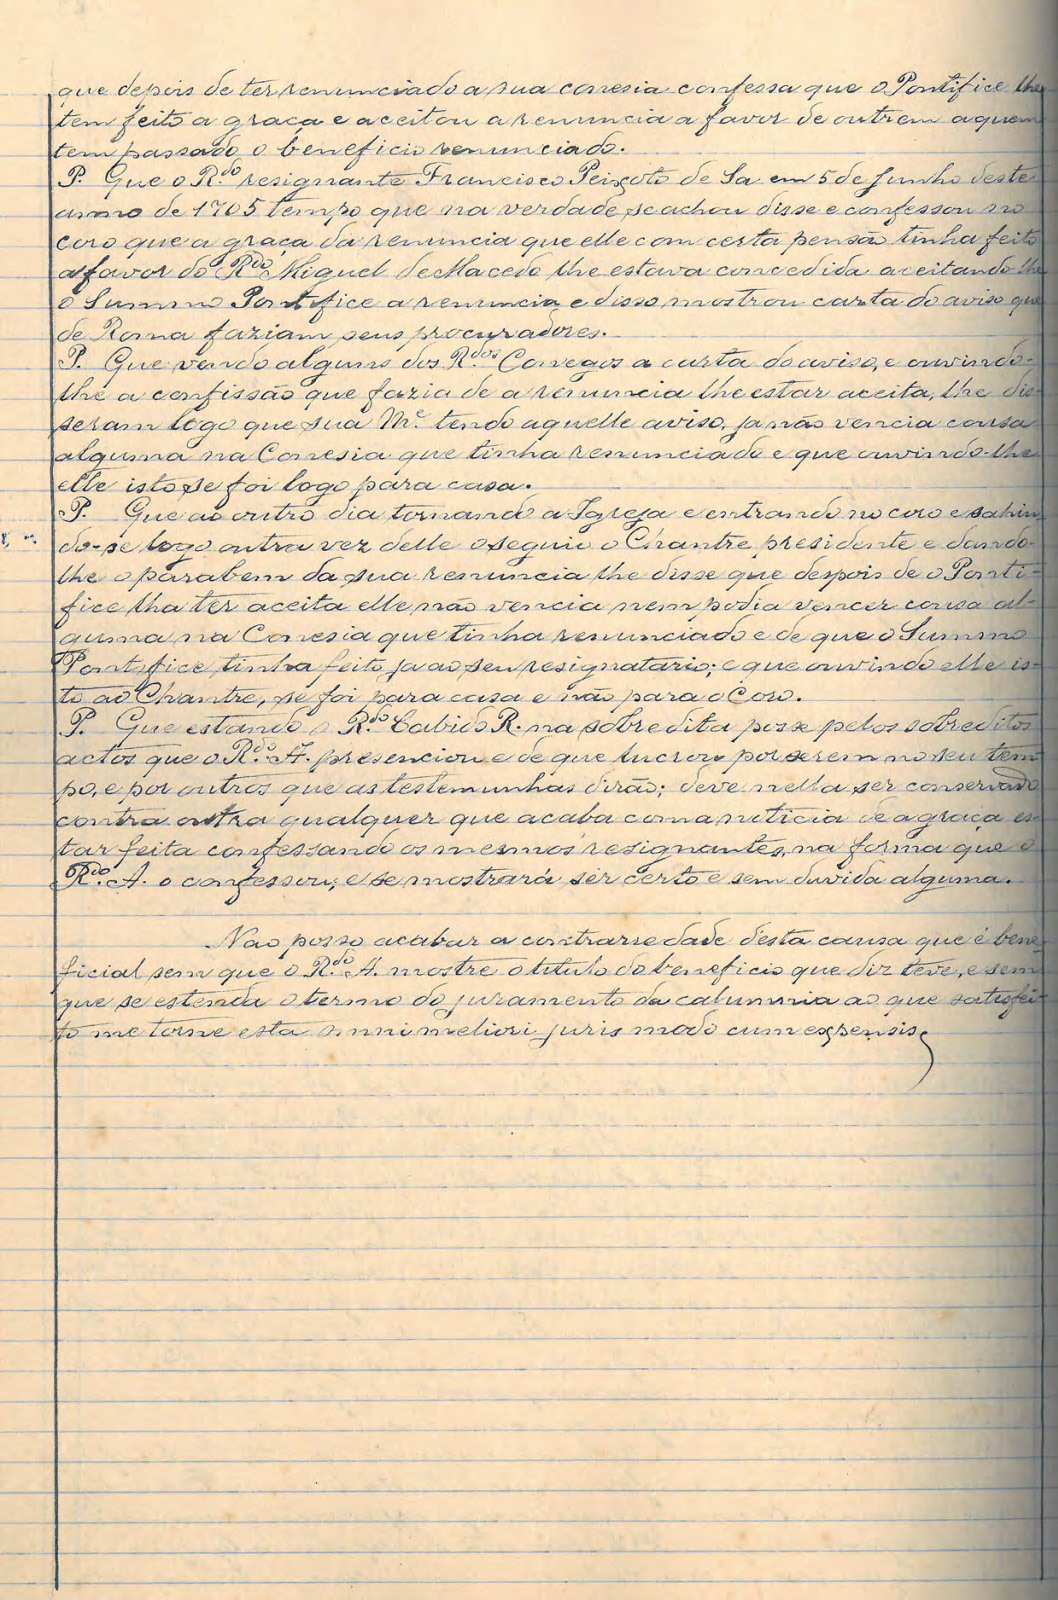 que depois de ter renunciado a sua conesia confessa que o Pontifice lhe
tem feito a graça e aceitou a renuncia a favor de outrem a quem
tem passado o beneficio renunciado.
P. Que o R.do resignante Francisco Peixoto de Sa em 5 de Junho deste
anno de 1705 tempo que na verdade se achou disse e confessou no
coro que a graça da renuncia que elle com certa pensão tinha feito
a favor do R.do Miguel de Macedo lhe estava concedida aceitando lhe
o Summo Pontifice a renuncia e disso mostrou carta do aviso que
de Roma faziam seus procuradores.
P. Que vendo alguns dos R.dos Conegos a carta do aviso, e ouvindo-
lhe a confissão que fazia de a renuncia lhe estar aceita, lhe dis-
seram logo que sua M.e tendo aquelle aviso, ja não vencia cousa
alguma na Conesia que tinha renunciado e que ouvindo-lhe
elle isto se foi logo para casa.
P. Que ao outro dia tornando a Igreja e entrando no coro e sahin
do-se logo outra vez delle o seguio o Chantre presidente e dando-
lhe o parabem da sua renuncia lhe disse que despois de o Ponti-
fice lha ter aceita elle não vencia nem podia vencer cousa al-
guma na Conesia que tinha renunciado e de que o Summo
Pontifice tinha feito ja ao seu resignatario; e que ouvindo elle is-
to ao Chantre, se foi para casa e não para o Coro.
P. Que estando o R.do Cabido R. na sobredita posse pelos sobreditos
actos que o R.do A. presenciou e de que lucrou por serem no seu tem
po, e por outros que as testemunhas dirão; deve nella ser conservado
contra outra qualquer que acaba com a noticia de a graça es-
tar feita confessando os mesmos resignantes, na forma que o
R.do A. o confessou; e se mostrará ser certo e sem duvida alguma.
Nao posso acabar a contrariedade desta causa que é bene
ficial sem que o R.do A. mostre o titulo do beneficio que diz teve, e sem
que se estenda o termo do juramento da calumnia ao que satisfei-
to me torne esta omni meliori juris modo cum expensis